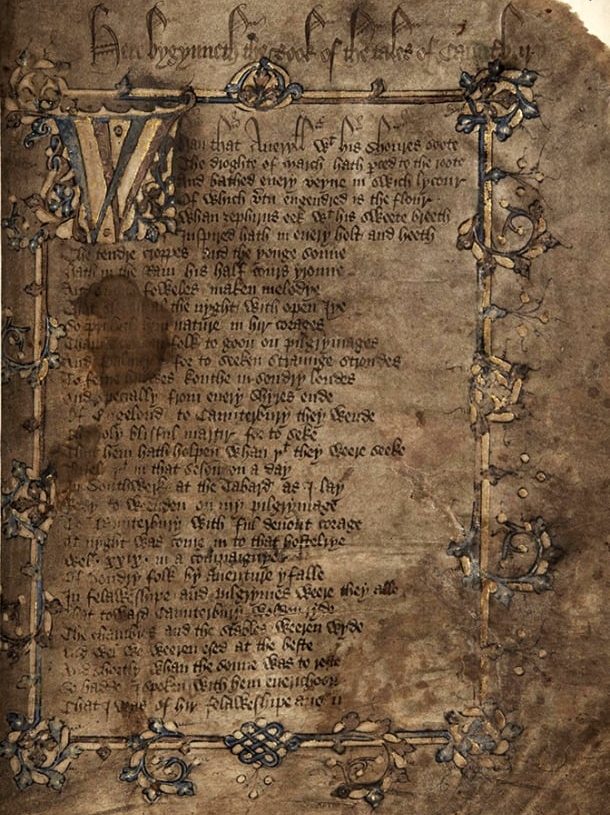 Here bygynneth the Book of the tales of Caunterbury
Whan that Aueryll wt his Shoures soote
The droghte of march hath pced to the roote
And bathed euery veyne in swich lycour
Of which vtu engendred is the flour
Whan zephirus eek wt his sweete breeth
Inspired hath in euery holt and heeth
The tendre croppes and the yonge sonne
Hath in the Ram his half cours yronne
And foweles maken melodye
that al the nyght with open Iye
So nature in hir corages
folk to goon on pilgrymages
And for to seeken straunge strondes
To ferne kouthe in sondry londes
And specially from euery shyres ende
Of Engelond to Caunterbury they wende
The holy blisful martir for to seke
That hem hath holpen whan yt they weere seeke
Bifel yt in that seson on a day
In Southwerk at the Tabard as I lay
Redy to wenden on my pilgrymage
To Caunterbury with ful deuout corage
At nyght was come in to that hostelrye
Wel xxix in a compaignye
Of sondry folk by auenture yfalle
In felaweshipe and pilgrymes weere they alle
That toward Caunterbury wolden ryde
The chambres and the stables weeren wyde
And wel we weeren esed at the beste
And shortly whan the sonne was to reste
So hadde I spoken with hem euerichoon
That I was of hir felaweshipe anon